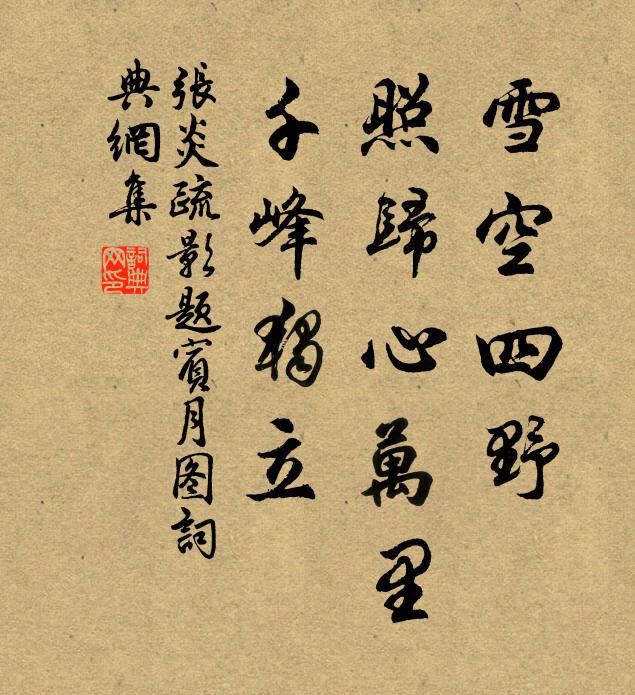 雪空四野
照歸心萬里
千峰獨立
張炎疏影題賓月图詞
典網集
詞典网印